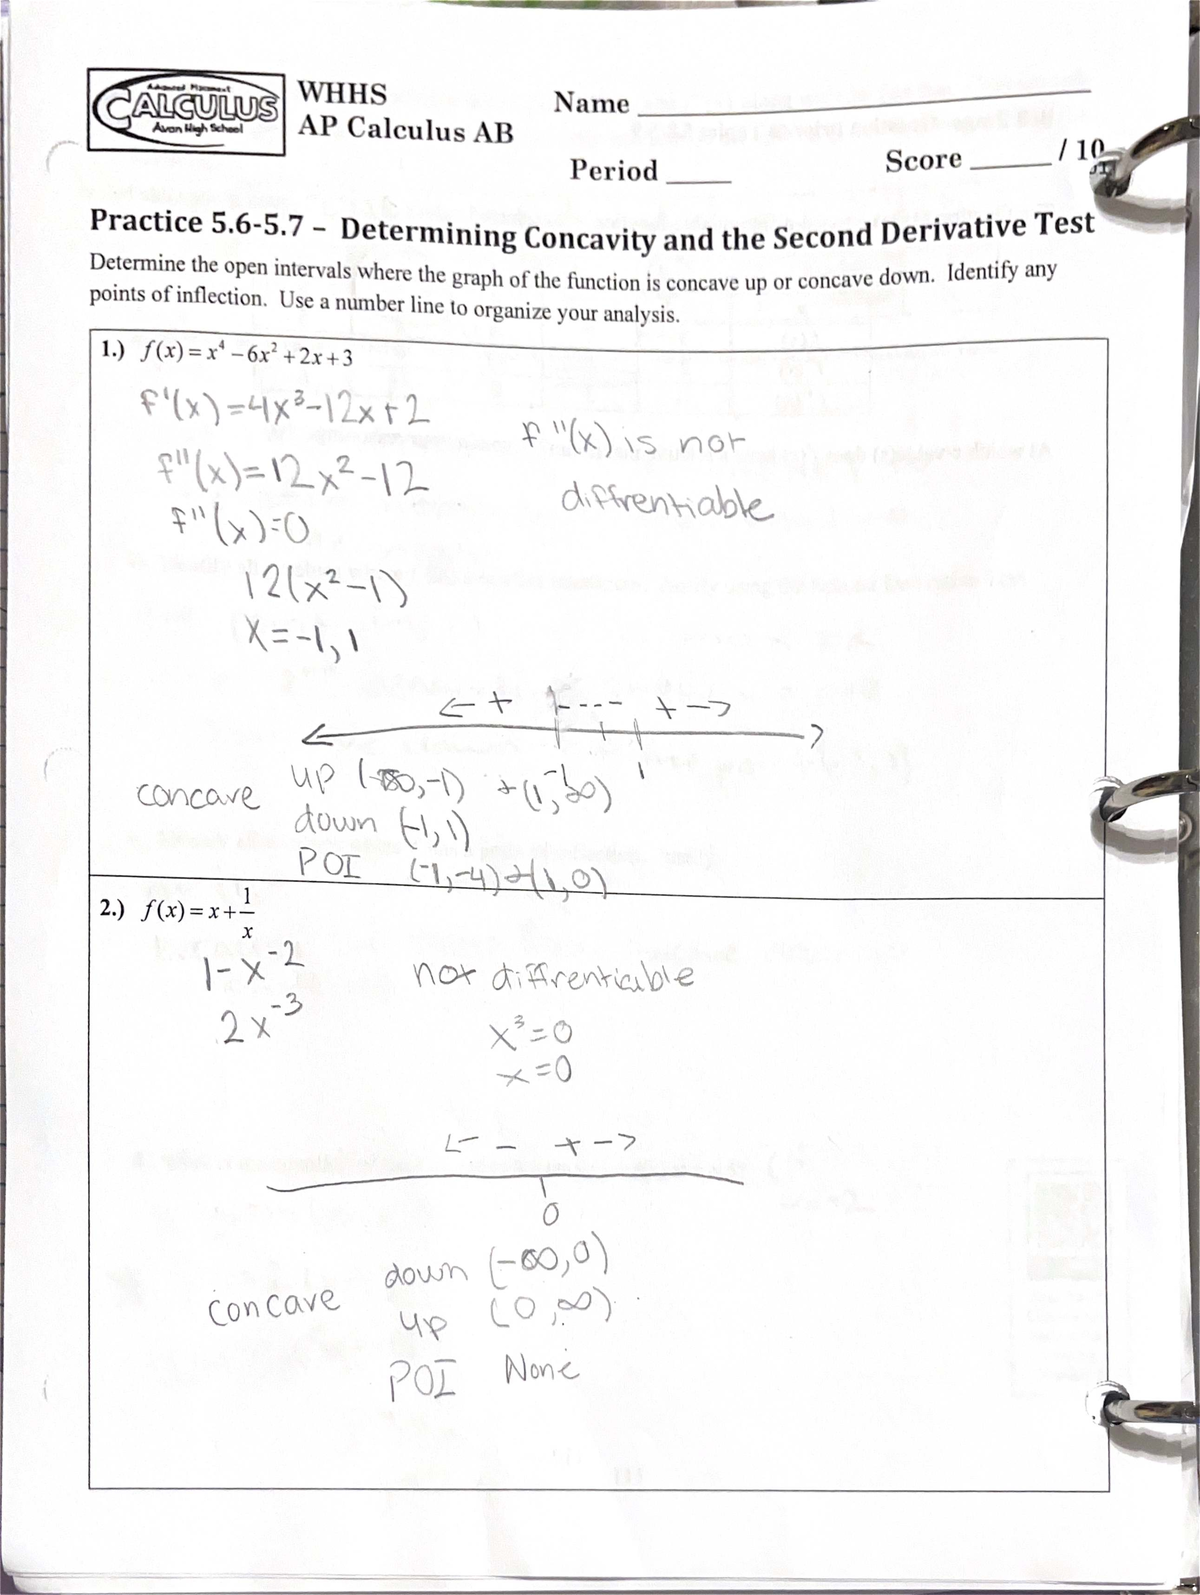 Advanced Placement
CALCULUS
Avon High School
WHHS
AP Calculus AB
Name
Period
Score / 10
Practice 5.6-5.7 – Determining Concavity and the Second Derivative Test
Determine the open intervals where the graph of the function is concave up or concave down. Identify any
points of inflection. Use a number line to organize your analysis.
1.) f(x)=x⁴−6x²+2x+3
f'(x)=4x³-12x+2
f''(x)=12x²-12
f''(x)=0
12(x²-1)
x=-1,1
f''(x) is not
diffrentiable
<- + ---- + ->
-1 1
concave up (-∞,-1) + (1,∞)
down (-1,1)
POI (-1,-4)+(1,0)
2.) f(x)=x+1/x
1-x⁻²
2x⁻³
not diffrentiable
x³=0
x=0
<- - + ->
0
concave down (-∞,0)
up (0,∞)
POI None